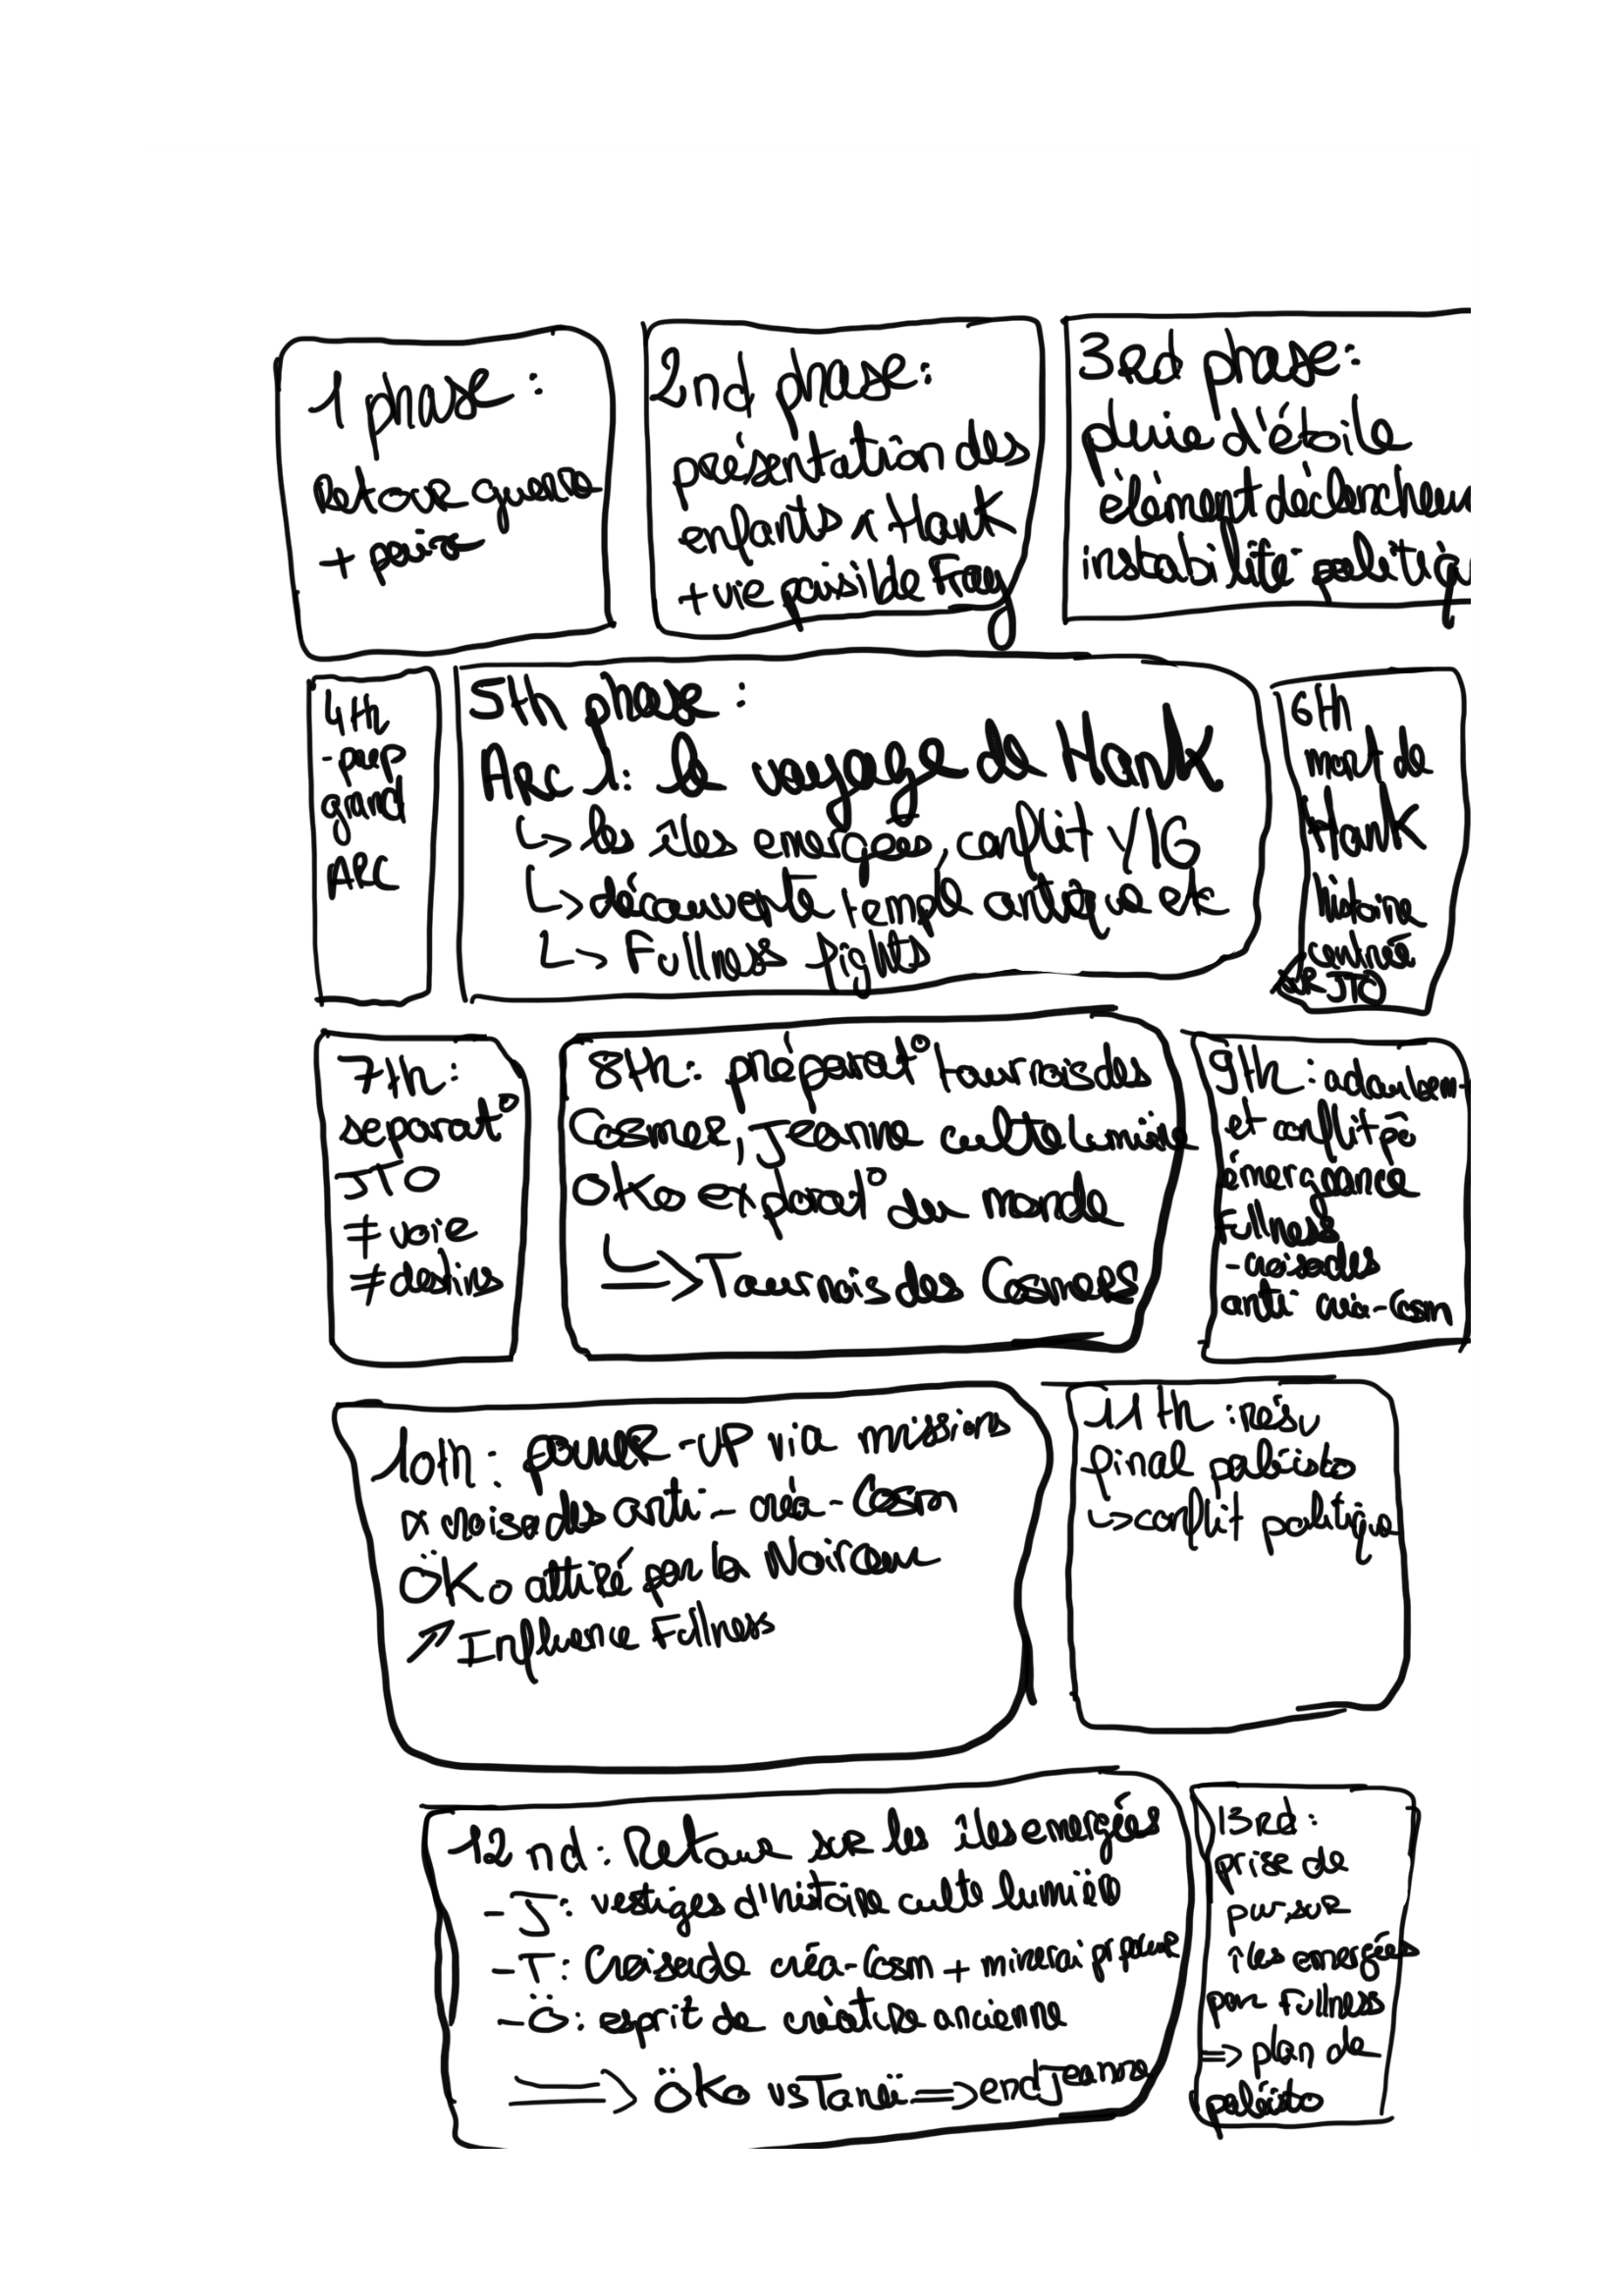 1 phase :
Retour guerre
+ paix
2nd phase:
présentation des
enfants x Hank
+ vie paisible Fray
3Rd phase:
pluie d'étoile
élément déclencheur
instabilité politiqu
4th
- prep
grand
ARC
5th phase :
ARC 1: le voyage de Hank.
↳ les îles emergées, conflit /IG
↳ découverte temple antique etc
↳ Fullness fights
6th
mort de
Hank
histoire
centrée
SUR JTO
7th:
séparat°
JTO
≠ voie
≠ destins
8th: préparat° tournois des
Cosmes, Jeanne culte lumière
Öko explorat° du monde
↳ Tournois des Cosmes
9th:
et conflit
émergeance
Fullness
- croisades
anti créa-Cosm
10th: power-UP via missions
x croisades anti-créa-Cosm
ÖKo attiré par la Noirceur
↗ Influence Fullness
11th : résu
final
↳ conflit politique
12 nd: Retour sur les îles emergées
- J: vestiges d'histoire culte lumière
- T: Croisade créa-Cosm + minerai
- Ö: esprit de créature ancienne
⇒ ÖKo vs ⇒ end Jeanne
13Rd:
prise de
sur
îles emergées
par Fullness
⇒ plan de